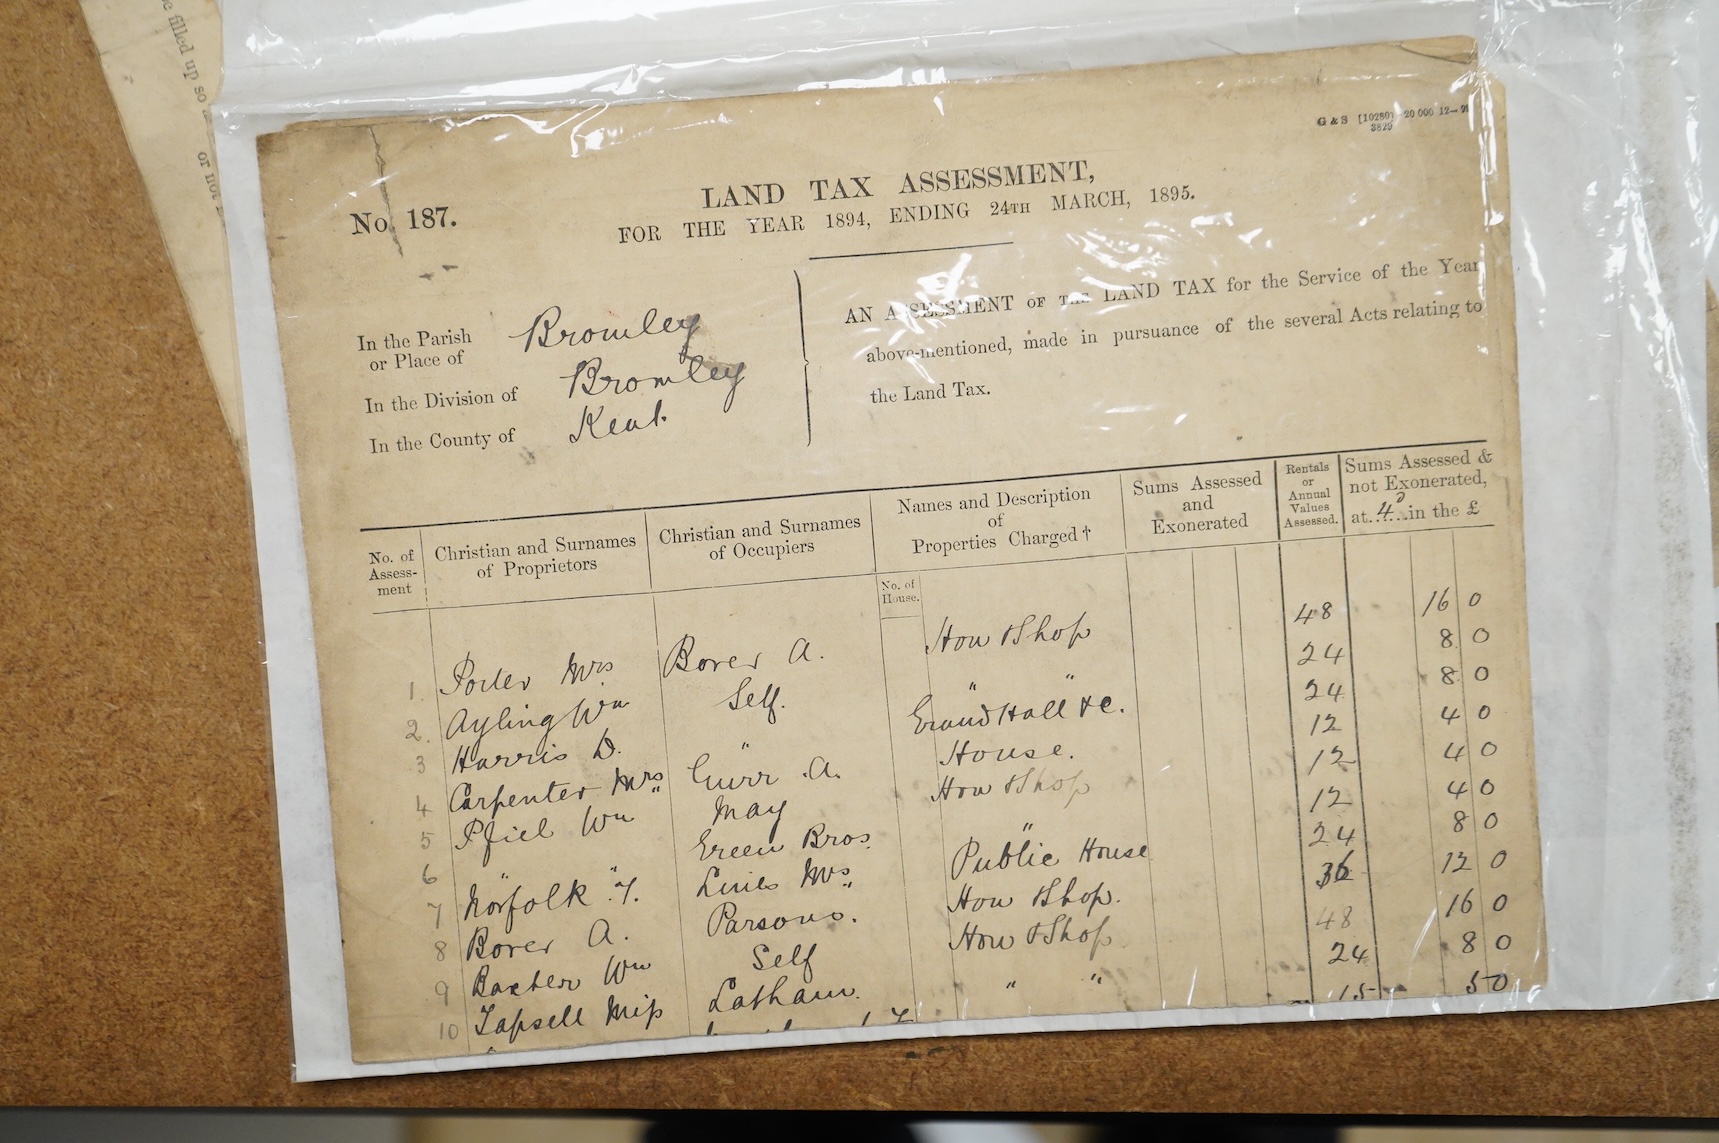 e filled up so
or not
G & S [10280] 20 000 12—9
3829
No. 187.
LAND TAX ASSESSMENT,
FOR THE YEAR 1894, ENDING 24TH MARCH, 1895.
In the Parish
or Place of Bromley
In the Division of Bromley
In the County of Kent.
AN ASSESSMENT OF THE LAND TAX for the Service of the Year
above-mentioned, made in pursuance of the several Acts relating to
the Land Tax.
No. of Assess-ment
Christian and Surnames of Proprietors
Christian and Surnames of Occupiers
Names and Description of Properties Charged †
No. of House.
Sums Assessed and Exonerated
Rentals or Annual Values Assessed.
Sums Assessed & not Exonerated, at 4d in the £
1. Porter Mrs Bover A. Hou & Shop 48 16 0
2. Ayling Wm Self. " " 24 8 0
3 Harris D. " Grand Hall &c. 24 8 0
4 Carpenter Mrs Gurr A. House. 12 4 0
5 Pfiel Wm May Hou & Shop 12 4 0
6 " " Green Bros. " 12 4 0
7 Norfolk T. Lines Mrs Public House 24 8 0
8 Bover A. Parsons. Hou & Shop. 36 12 0
9 Baxter Wm Self Hou & Shop 48 16 0
10 Tapsell Miss Latham. " " 24 8 0
15 5 0